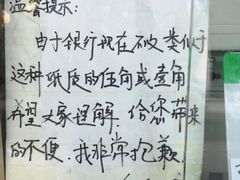 温馨提示:
由于银行现在不收类似于
这种纸质的伍角或壹角
希望大家理解.给您带来
的不便.我非常抱歉